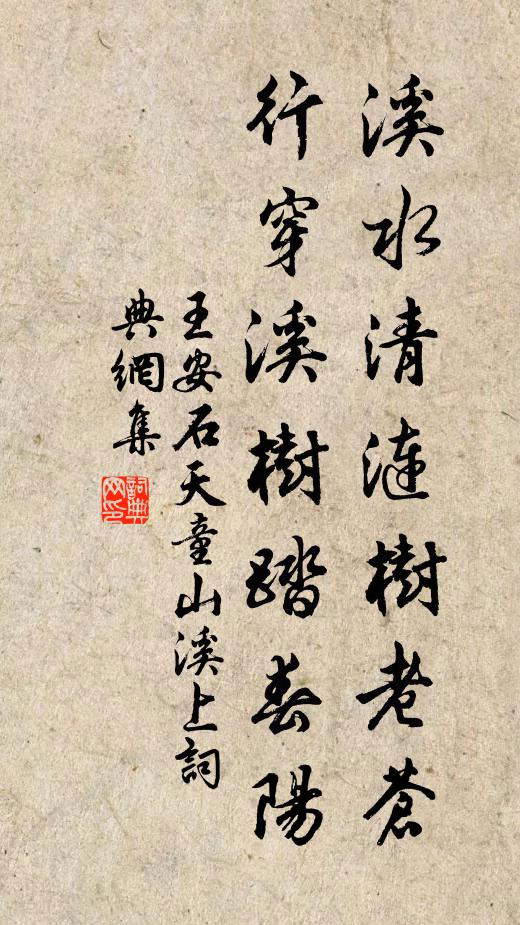 溪水清漣樹老蒼
行穿溪樹踏春陽
王安石天童山溪上詞
典網集
詞典網印